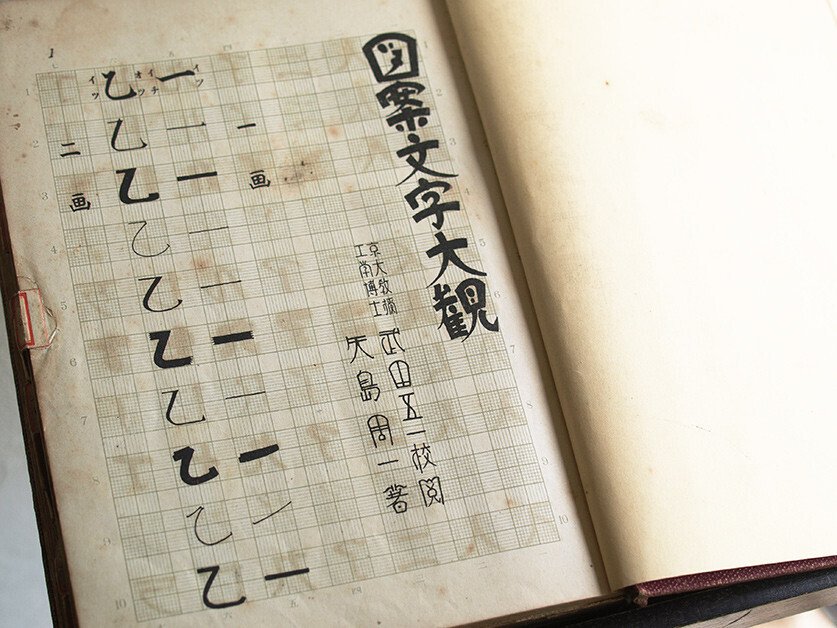 図案文字大観
京大教授
工学博士
武田五一校閲
矢島周一著
一画
イツ
一一一一一一一一一一
イチ
オツ
乙乙乙乙乙乙乙乙乙乙
イツ
二画
1